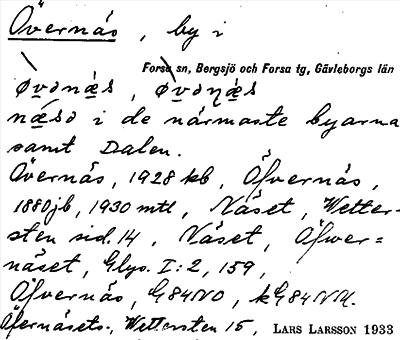 Övernäs, by i
Forsa sn, Bergsjö och Forsa tg, Gävleborgs län
næsə i de närmaste byarna
samt Dalen.
Övernäs, 1928 kb, Öfvernäs,
1880 jb, 1930 mtl, Näset, Wetter-
sten sid. 14, Näset, Öfwer=
näset, Glys. I:2, 159,
Öfvernäs, G84NO, kG84NV.
Öfernäsets., Wettersten 15, LARS LARSSON 1933